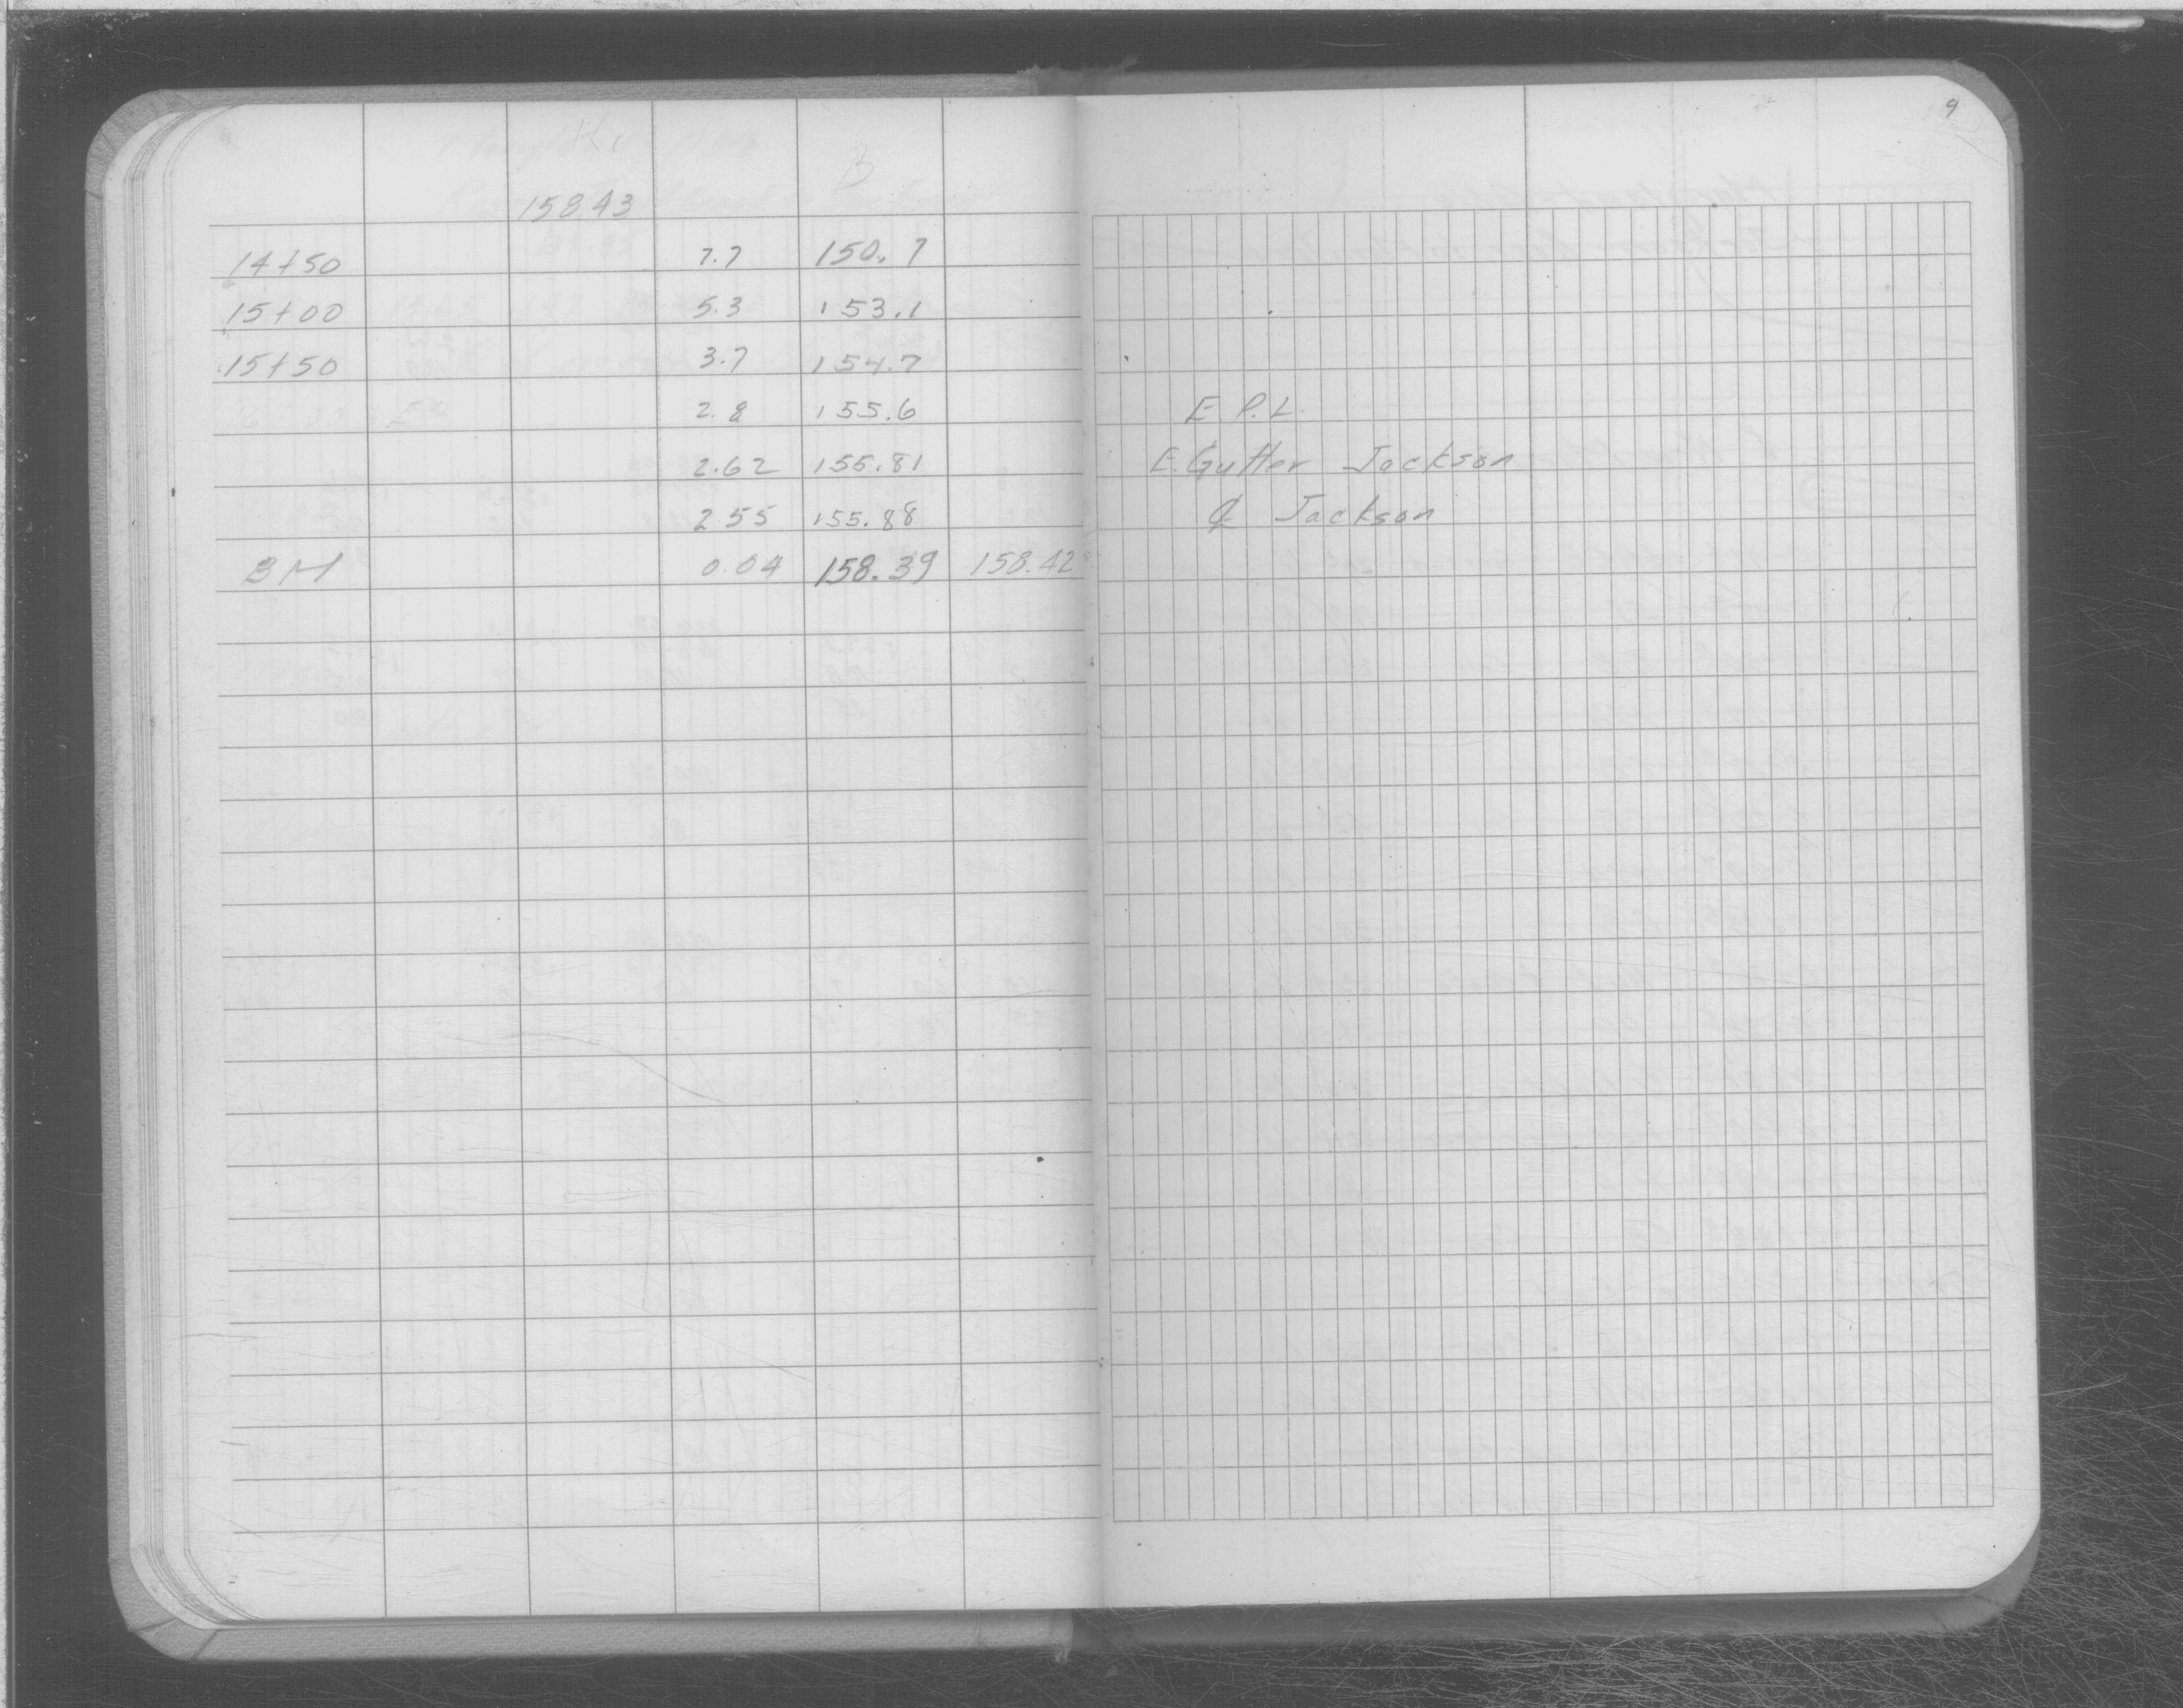 9
158 43
14+50 7.7 150.7
15+00 5.3 153.1
15+50 3.7 154.7
2.8 155.6 E. P. L.
2.62 155.81 E. Gutter Jackson
2 55 155.88 ₵ Jackson
BM 0.04 158.39 158.42